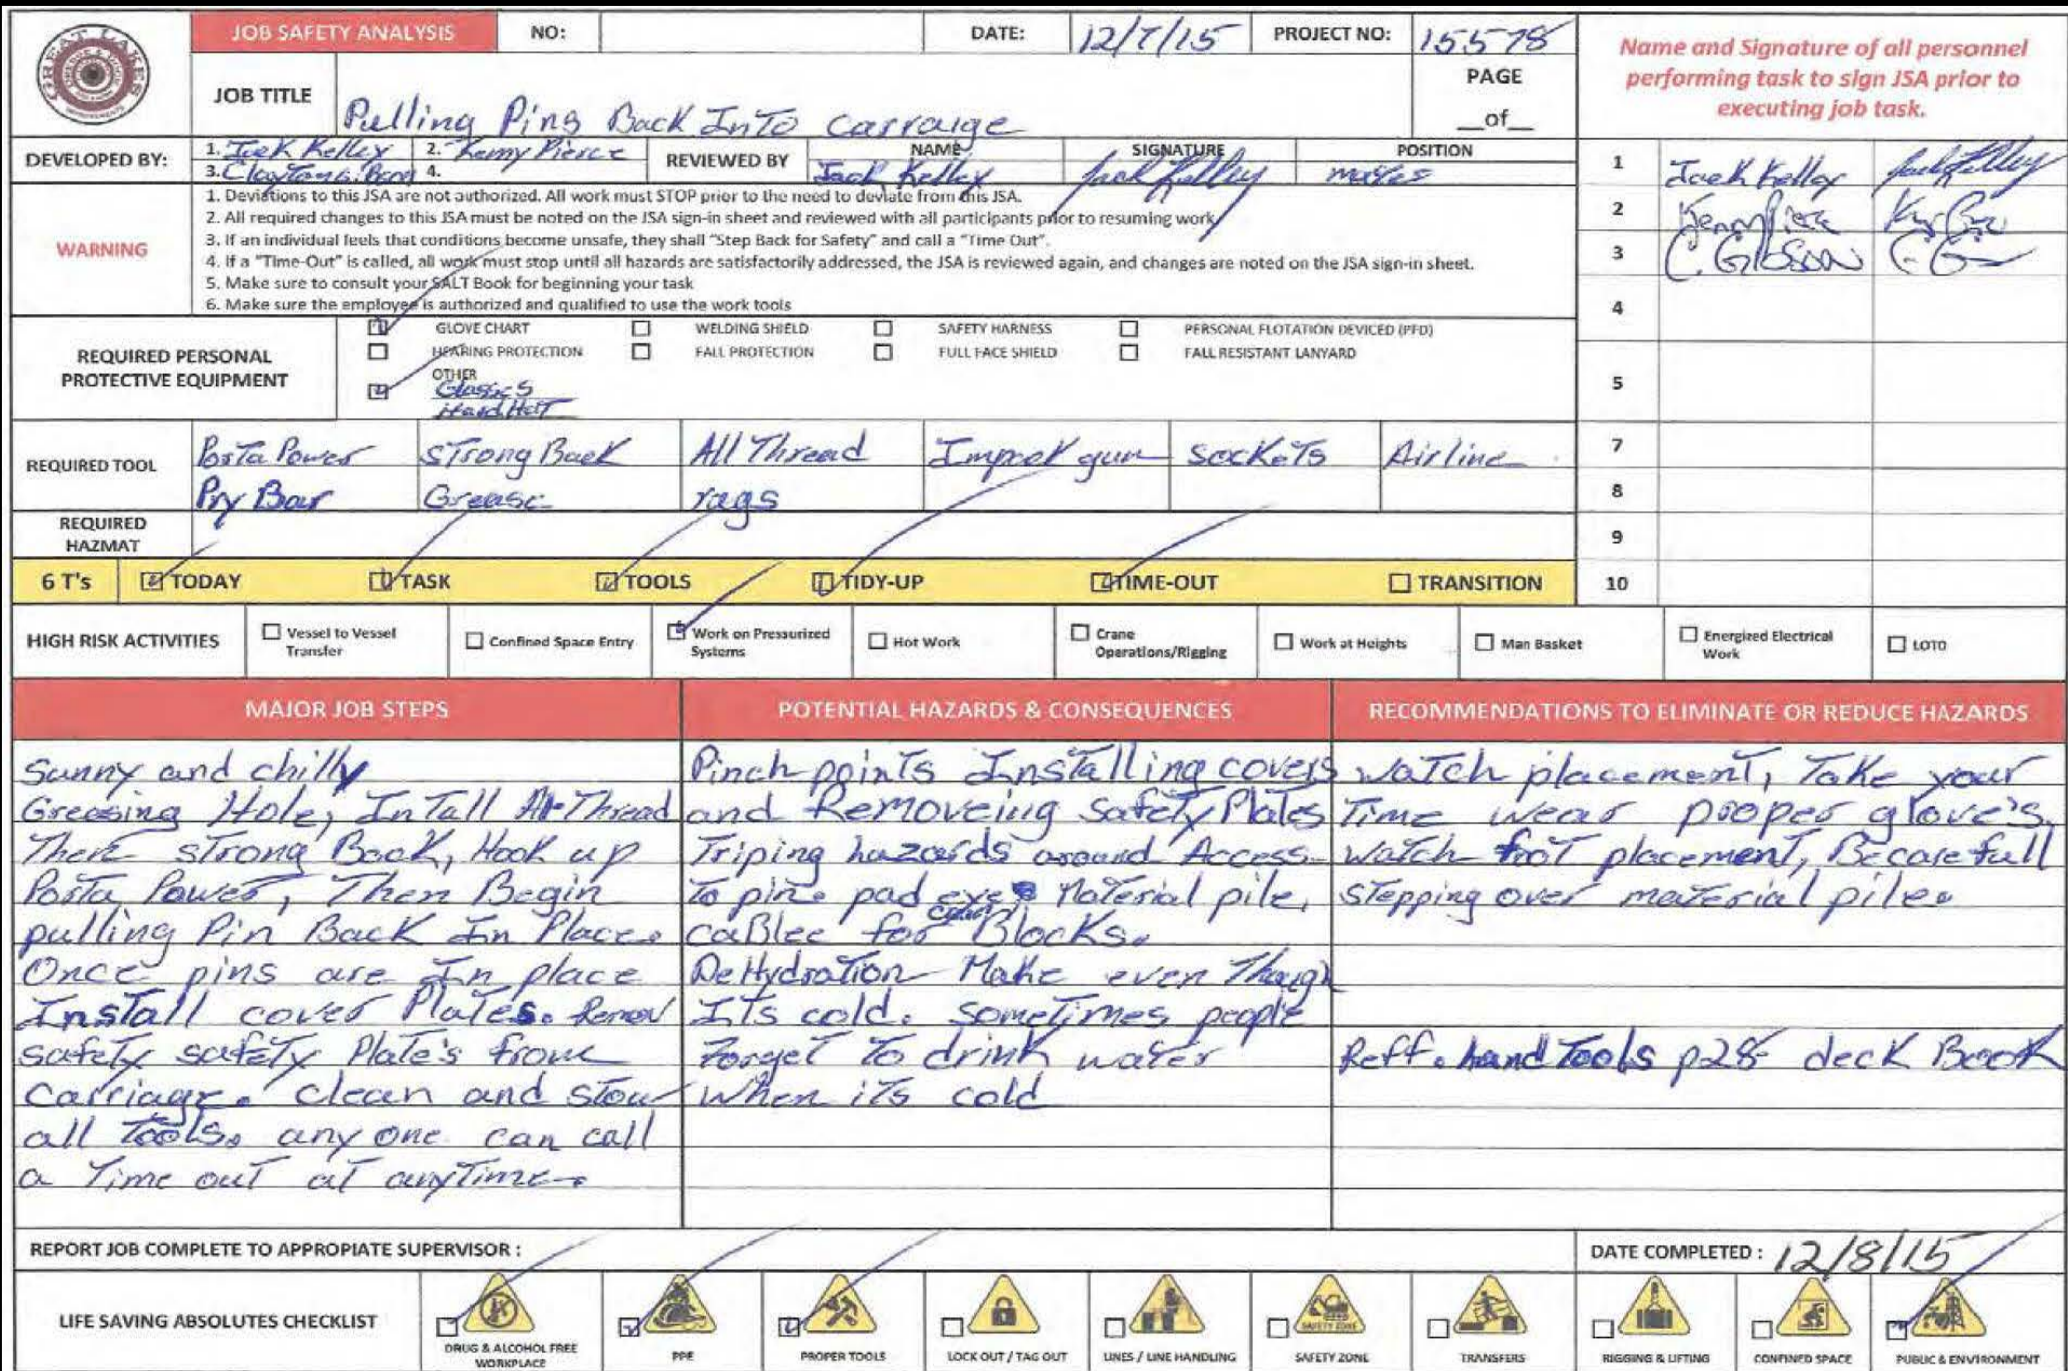 GREAT LAKES
JOB SAFETY ANALYSIS NO: DATE: 12/7/15 PROJECT NO: 15578
JOB TITLE Pulling Pins Back Into carraige
PAGE
__of__
Name and Signature of all personnel
performing task to sign JSA prior to
executing job task.
DEVELOPED BY: 1. Jack Kelley 2. Kenny Pierce
3. 4.
REVIEWED BY NAME SIGNATURE POSITION
Jack Kelley Jack Kelley mates
WARNING
1. Deviations to this JSA are not authorized. All work must STOP prior to the need to deviate from this JSA.
2. All required changes to this JSA must be noted on the JSA sign-in sheet and reviewed with all participants prior to resuming work
3. If an individual feels that conditions become unsafe, they shall "Step Back for Safety" and call a "Time Out".
4. If a "Time-Out" is called, all work must stop until all hazards are satisfactorily addressed, the JSA is reviewed again, and changes are noted on the JSA sign-in sheet.
5. Make sure to consult your SALT Book for beginning your task
6. Make sure the employee is authorized and qualified to use the work tools
1 Jack Kelley Jack Kelley
2 Kenny Pierce
3 C. Gibson
4
5
7
8
9
10
REQUIRED PERSONAL
PROTECTIVE EQUIPMENT
GLOVE CHART WELDING SHIELD SAFETY HARNESS PERSONAL FLOTATION DEVICED (PFD)
HEARING PROTECTION FALL PROTECTION FULL FACE SHIELD FALL RESISTANT LANYARD
OTHER
Glasses
Hard Hat
REQUIRED TOOL
Porta Power STrong Back All Thread Impack gun SockeTs Airline
Pry Bar Grease rags
REQUIRED
HAZMAT
6 T's TODAY TASK TOOLS TIDY-UP TIME-OUT TRANSITION
HIGH RISK ACTIVITIES
Vessel to Vessel
Transfer
Confined Space Entry
Work on Pressurized
Systems
Hot Work
Crane
Operations/Rigging
Work at Heights
Man Basket
Energized Electrical
Work
LOTO
MAJOR JOB STEPS
Sunny and chilly
Greasing Hole, InTall All-Thread
Then sTrong Back, Hook up
Porta Power, Then Begin
pulling Pin Back In Place.
Once pins are In place
Install cover Plates. Remov
safety safety Plate's from
Carriage. clean and stow
all Tools. any one can call
a Time out at anyTime.
POTENTIAL HAZARDS & CONSEQUENCES
Pinch points Installing covers
and Removeing safety Plates
Triping hazards around Access
To pin. pad eye Material pile,
caBlee for Blocks.
DeHydraTion Make even Though
ITs cold. sometimes people
Forget To drink water
When iTs cold
RECOMMENDATIONS TO ELIMINATE OR REDUCE HAZARDS
Watch placement, Take your
Time wear proper glove's.
Watch fooT placement, Be care full
stepping over maTerial pile.
Reff. hand Tools p28- deck Book
REPORT JOB COMPLETE TO APPROPIATE SUPERVISOR :
DATE COMPLETED : 12/8/15
LIFE SAVING ABSOLUTES CHECKLIST
DRUG & ALCOHOL FREE
WORKPLACE
PPE
PROPER TOOLS
LOCK OUT / TAG OUT
LINES / LINE HANDLING
SAFETY ZONE
SAFETY ZONE
TRANSFERS
RIGGING & LIFTING
CONFINED SPACE
PUBLIC & ENVIRONMENT